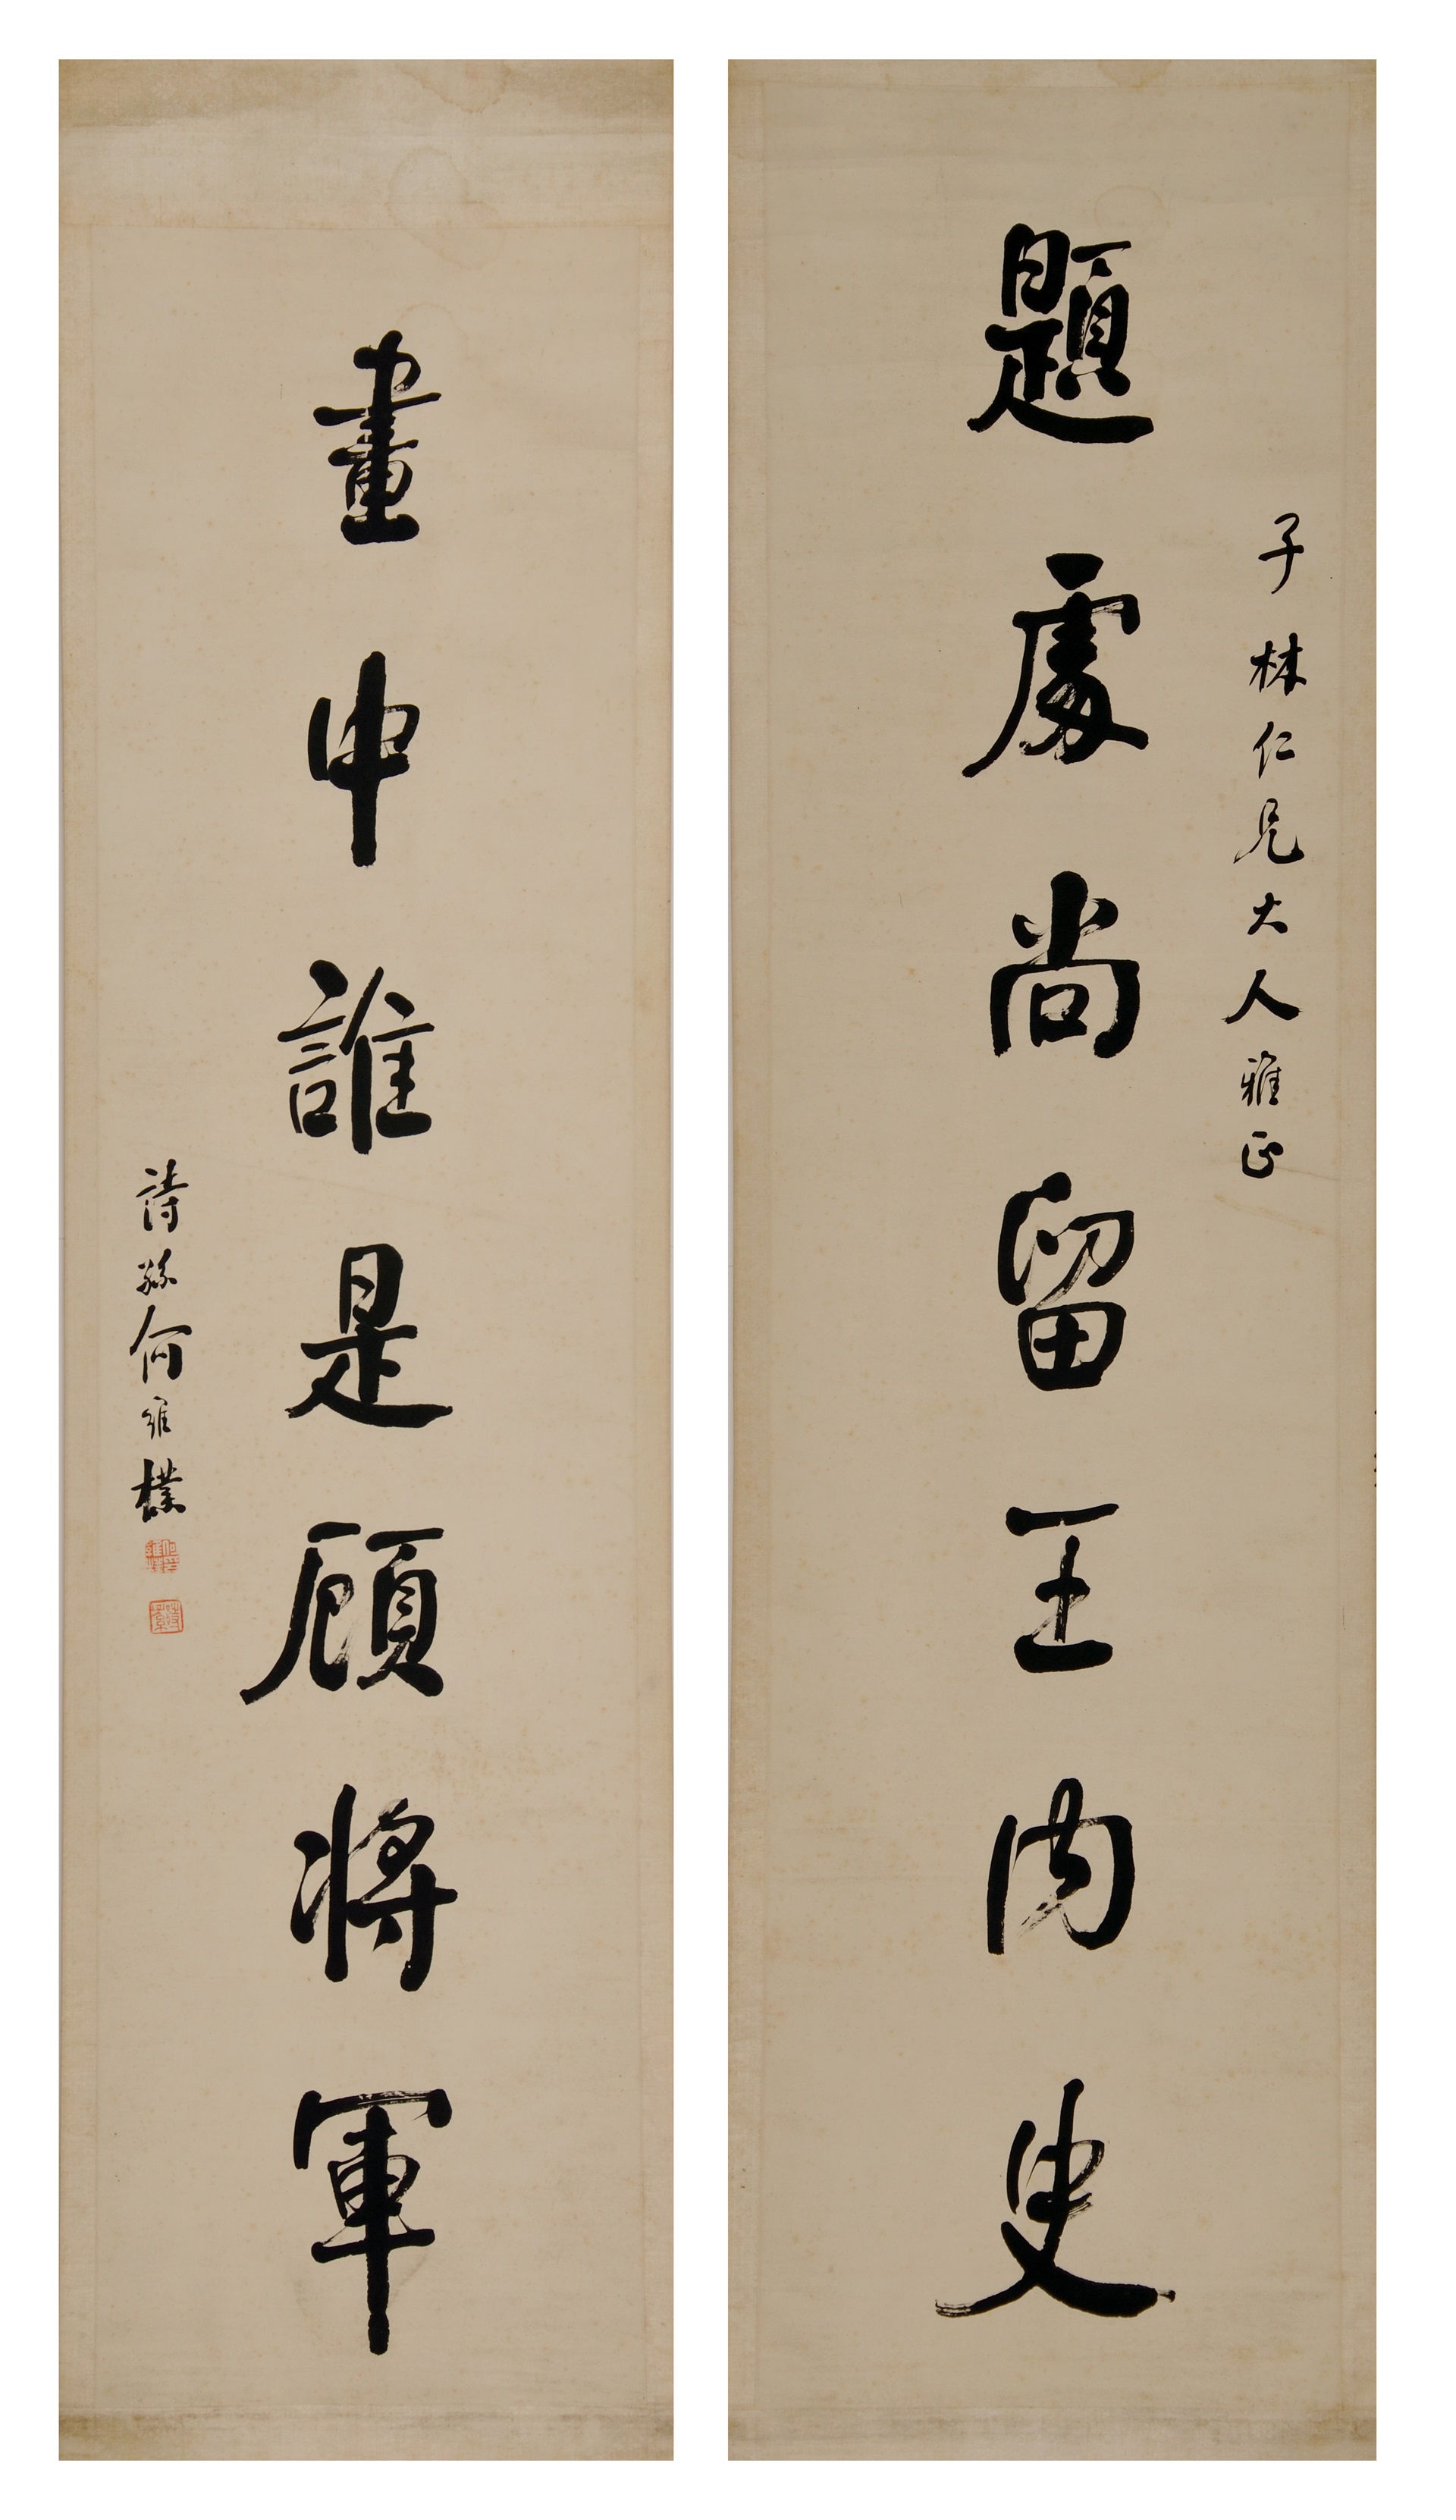 子林仁兄大人雅正
題處尚留王內史
畫中誰是顧將軍
詩孫何維樸